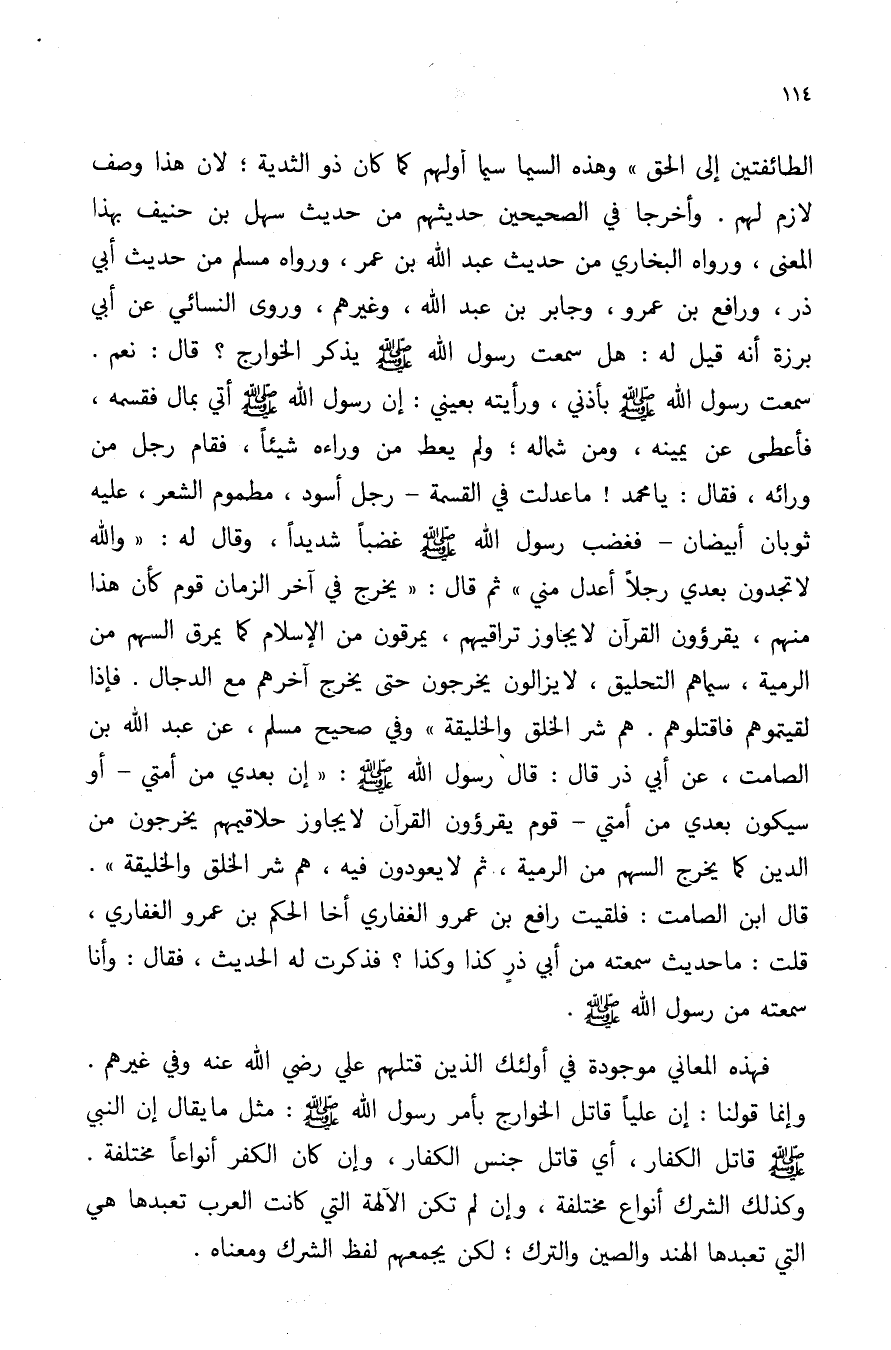 ١١٤
الطائفتين إلى الحق » وهذه السيما سيما أولهم كما كان ذو الثدية ؛ لان هذا وصف
لازم لهم . وأخرجا في الصحيحين حديثهم من حديث سهل بن حنيف بهذا
المعنى ، ورواه البخاري من حديث عبد الله بن عمر ، ورواه مسلم من حديث أبي
ذر ، ورافع بن عمرو ، وجابر بن عبد الله ، وغيرهم ، وروى النسائي عن أبي
برزة أنه قيل له : هل سمعت رسول الله ﷺ يذكر الخوارج ؟ قال : نعم .
سمعت رسول الله ﷺ بأذني ، ورأيته بعيني : إن رسول الله ﷺ أتي بمال فقسمه ،
فأعطى عن يمينه ، ومن شماله ؛ ولم يعط من وراءه شيئاً ، فقام رجل من
ورائه ، فقال : يامحمد ! ماعدلت في القسمة – رجل أسود ، مطموم الشعر ، عليه
ثوبان أبيضان – فغضب رسول الله ﷺ غضباً شديداً ، وقال له : « والله
لاتجدون بعدي رجلاً أعدل مني » ثم قال : « يخرج في آخر الزمان قوم كأن هذا
منهم ، يقرؤون القرآن لايجاوز تراقيهم ، يمرقون من الإسلام كما يمرق السهم من
الرمية ، سيماهم التحليق ، لايزالون يخرجون حتى يخرج آخرهم مع الدجال . فإذا
لقيتموهم فاقتلوهم . هم شر الخلق والخليقة » وفي صحيح مسلم ، عن عبد الله بن
الصامت ، عن أبي ذر قال : قال رسول الله ﷺ : « إن بعدي من أمتي – أو
سيكون بعدي من أمتي – قوم يقرؤون القرآن لايجاوز حلاقيمهم يخرجون من
الدين كما يخرج السهم من الرمية ، ثم لايعودون فيه ، هم شر الخلق والخليقة » .
قال ابن الصامت : فلقيت رافع بن عمرو الغفاري أخا الحكم بن عمرو الغفاري ،
قلت : ماحديث سمعته من أبي ذرٍ كذا وكذا ؟ فذكرت له الحديث ، فقال : وأنا
سمعته من رسول الله ﷺ .
فهذه المعاني موجودة في أولئك الذين قتلهم علي رضي الله عنه وفي غيرهم .
وإنما قولنا : إن علياً قاتل الخوارج بأمر رسول الله ﷺ : مثل مايقال إن النبي
ﷺ قاتل الكفار ، أي قاتل جنس الكفار ، وإن كان الكفر أنواعاً مختلفة .
وكذلك الشرك أنواع مختلفة ، وإن لم تكن الآلهة التي كانت العرب تعبدها هي
التي تعبدها الهند والصين والترك ؛ لكن يجمعهم لفظ الشرك ومعناه .